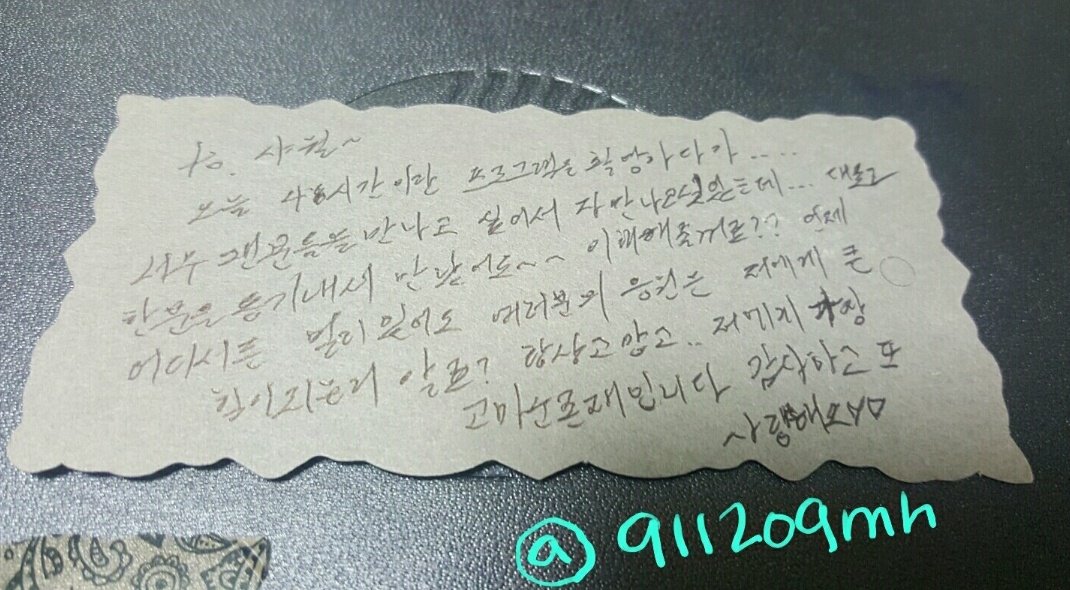 to. 샤월~
오늘 48시간이란 프로그램을 촬영하다가.....
너무 팬분들을 만나고 싶어서 다 만나고싶었는데... 대표로
한분을 용기내서 만났어요~~ 이해해줄꺼죠?? 언제
어디서든 멀리 있어도 여러분의 응원은 저에게 큰
힘이되는거 알죠? 항상고맙고.. 저에게 가장
고마운존재입니다 감사하고 또
사랑해요
@911209mh